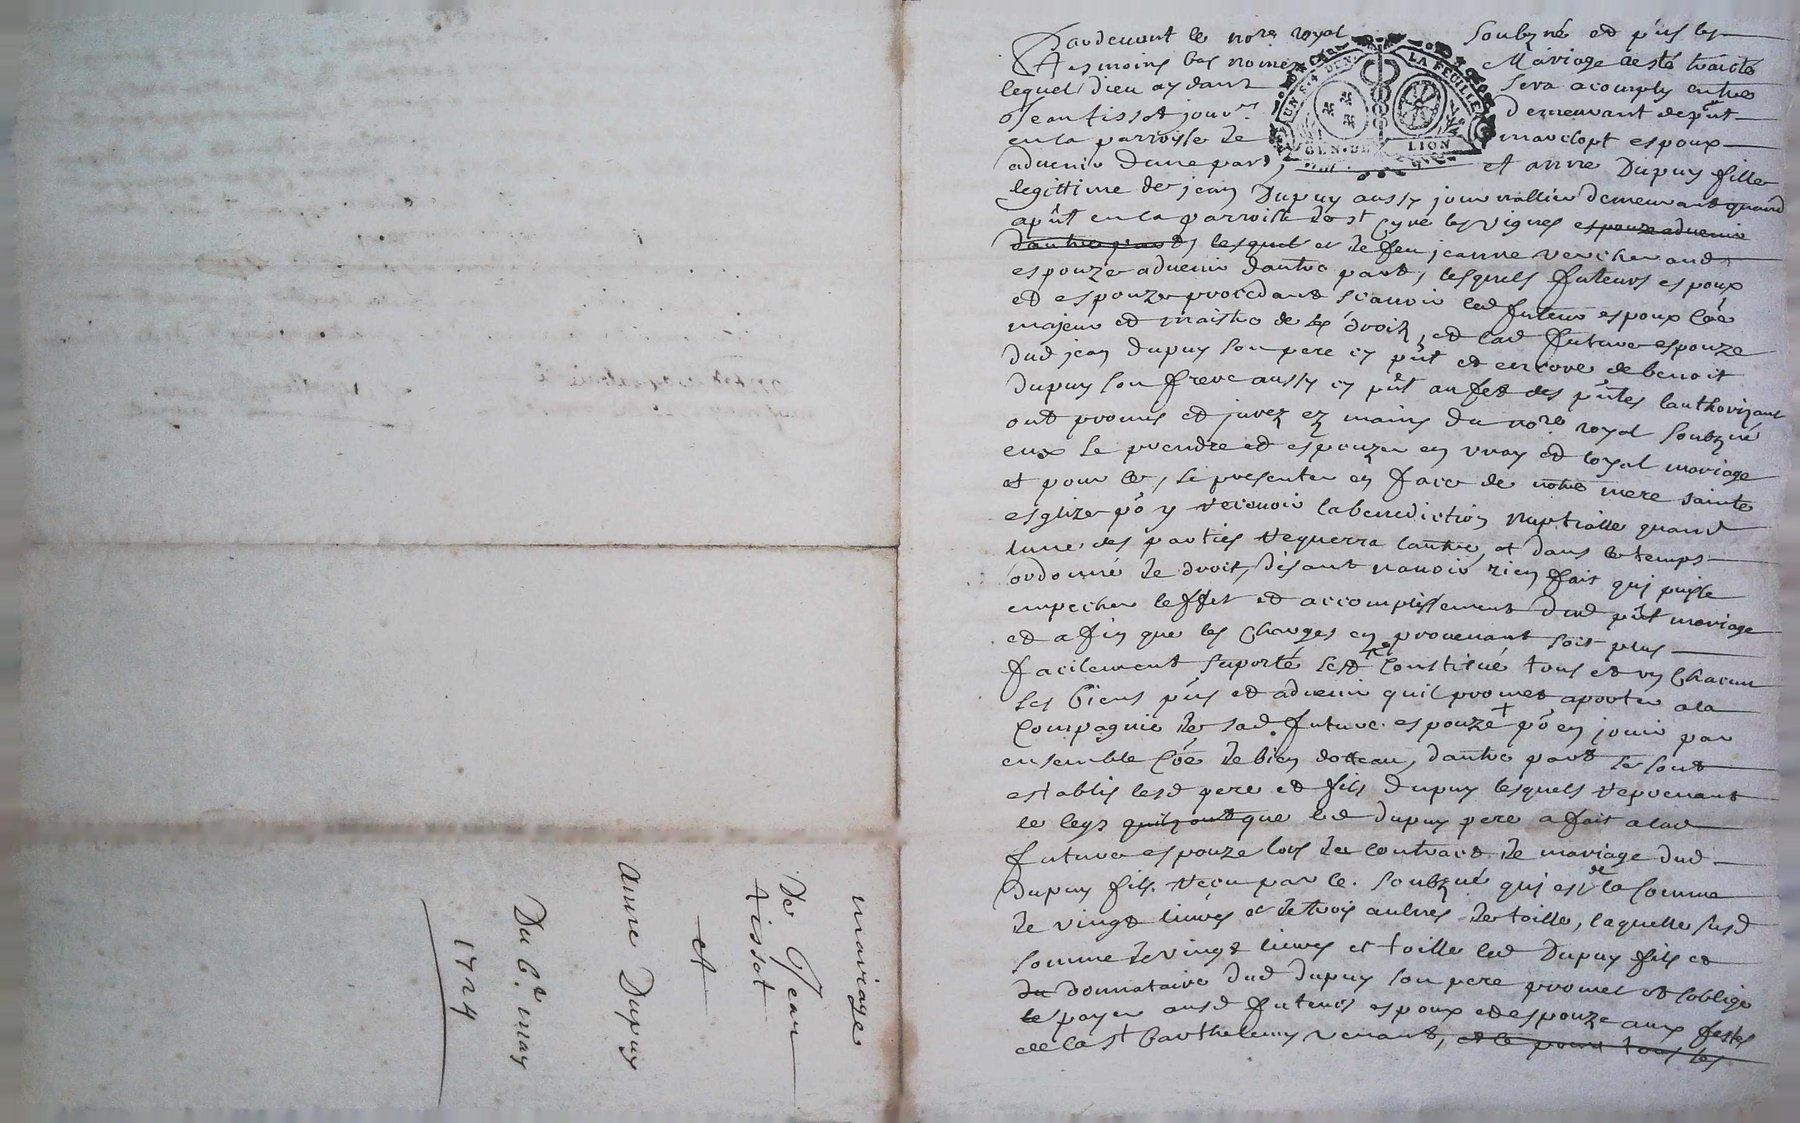 mariage
De Jean
tissot
et
anne Dupuy
Du 6e. may
1724
Pardevant le nore royal soubzné et p'ns les
tesmoins bas només Mariage a esté traicté
lequel Dieu aydant sera acomply entre
Jean tissot jour.er demeurant de p'nt
en la parroisse de marclopt espoux
aduenir dune part, et anne Dupuy fille
legittime de jean Dupuy aussy journallier demeurant quand
a p'nt en la parroisse de st Cyre les vignes espouze aduenir
dautre part, lesquel et de feu jeanne vercherand
espouze aduenir dautre part, lesquels futeurs espoux
et espouze procedant scavoir led futeur espoux Cõe
majeur et maistre de ses droitz, et lad future espouze
dud jean dupuy son pere cy p'nt et encore de benoit
Dupuy son frere aussy cy p'nt au fet des p'ntes lauthorizant
ont promis et jurez ez mains du nore. royal soubzné
eux se prendre et espouzer en vray et loyal mariage
et pour ce, se presenter en face de notre mere sainte
esglize po y recevoir la benediction nuptialle quand
lune des parties requerra lautre, et dans le temps
ordonné de droit, disant navoir rien fait quj puisse
empecher leffet et accomplissement dud p'nt mariage
et afin que les Charges en provenant soit plus
facilement suporté sest Constitué tous et un Chacun
ses biens p'ns et aduenir quil promet aporter a la
Compagnie de sad. future espouze + po en jouir par
ensemble Cõe de bien dotteau, dautre part se sont
establis lesd pere et fils Dupuy lesquels reprenant
le legs quilz ont que led Dupuy pere a fait a lad
future espouze lors du contract de mariage dud
Dupuy fils. reçu par le. soubzné quj est de la somme
de vingt livres et de trois aulnes de toille, laquelle susd
somme de vingt livres et toille led Dupuy fils et
du donnataire dud Dupuy son pere promet et soblige
de payer ausd futeurs espoux et espouze aux festes
de la st Barthelemy venant, et le pour tous les
UN S. 4 DEN. LA FEUILLE
GEN. DE LION